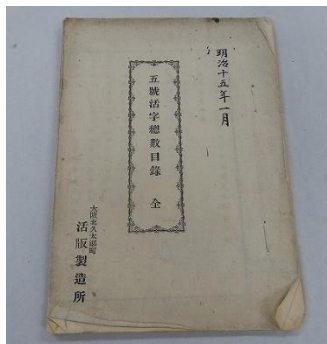 明治十五年一月
五號活字總數目錄 全
大阪北久太郎町
活版製造所